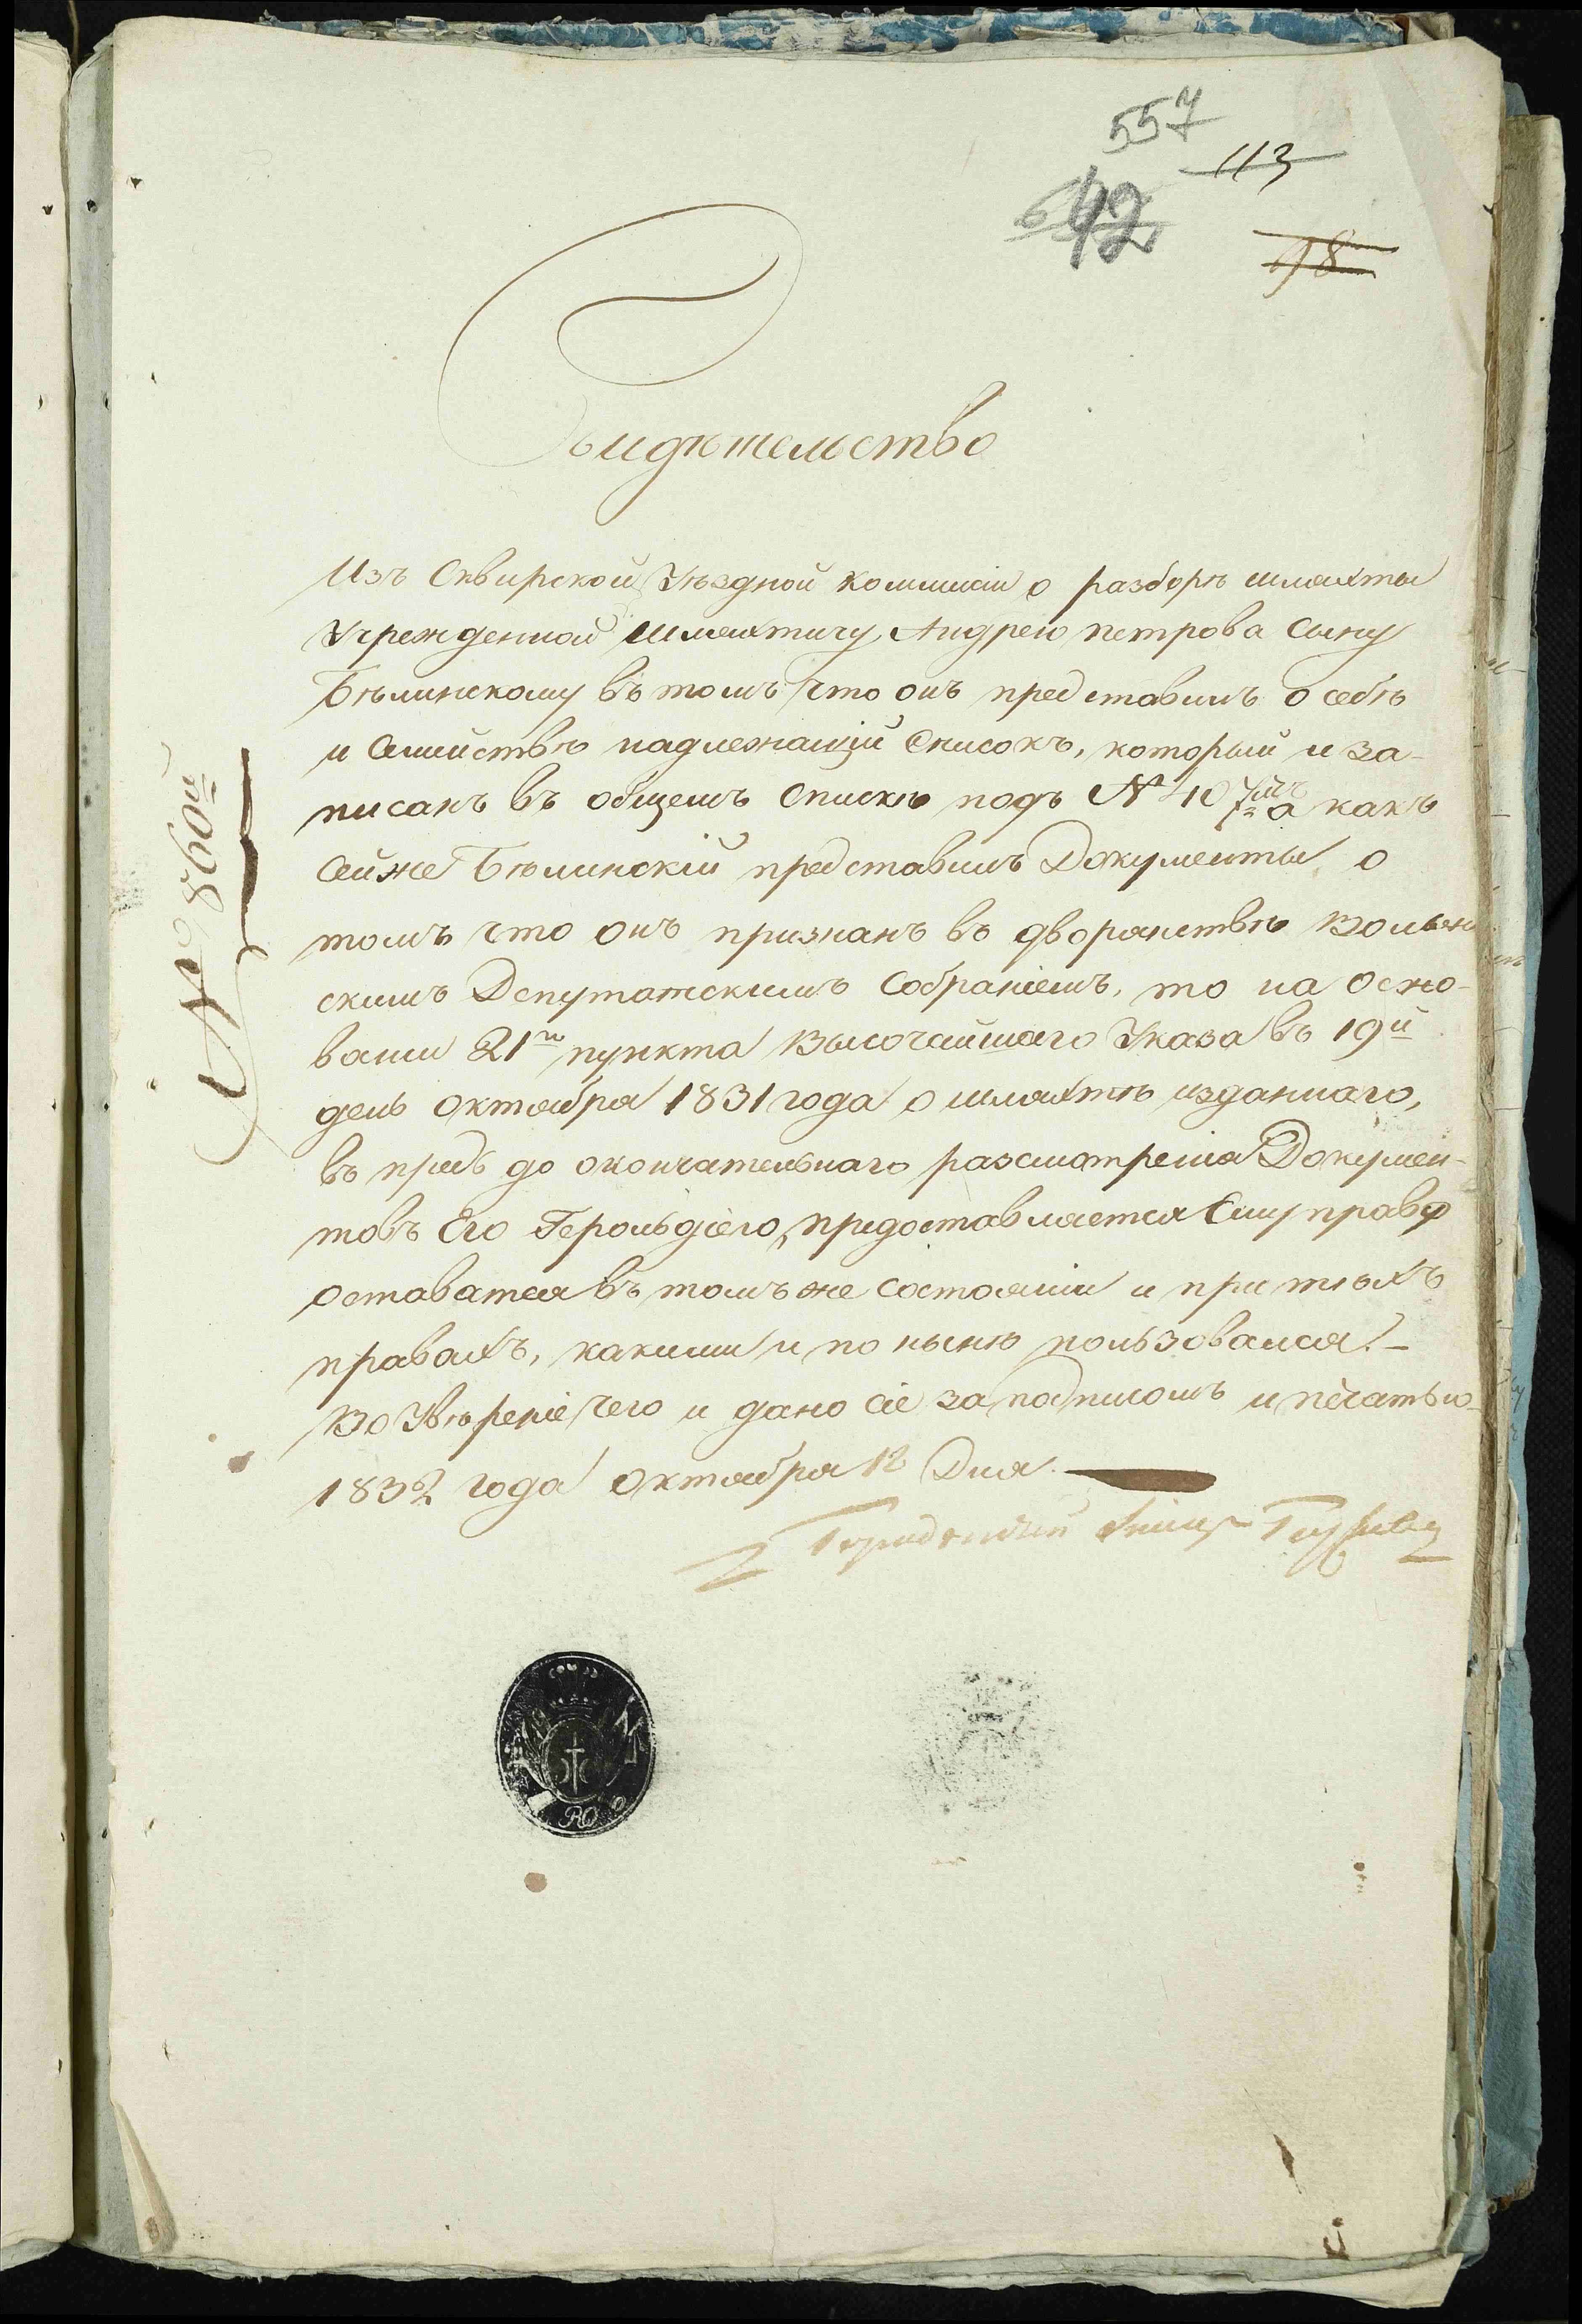 557
113
642
98
Свидѣтельство
Изъ Сквирской Уѣздной коммисіи о разборѣ шляхты
Учрежденной Шляхтичу Андрею петрова Сыну
Бѣлинскому въ томъ что онъ представилъ о себѣ
и Семийствѣ надлежащій Списокъ, который и за-
писанъ въ общемъ Спискѣ подъ № 107мъ а какъ
Сей же Бѣлинскій представилъ Документы о
томъ что онъ признанъ въ дворянствѣ Волын
скимъ Депутатскимъ Собраніемъ, то на Осно-
ваніи 21го пункта Высочайшаго Указа въ 19й
день Октября 1831 года о шляхтѣ изданнаго,
въ предь до окончательнаго разсмотренія Докумен-
товъ Его Герольдіею, предоставляется Ему право
оставатся въ томъ же состояніи и при тѣхъ
правахъ, какими и по нынѣ пользовался.-
Во Увѣреніе чего и дано сіе за подписомъ и печатью
1832 года Октября 12 Дня.
№ 860й
RO